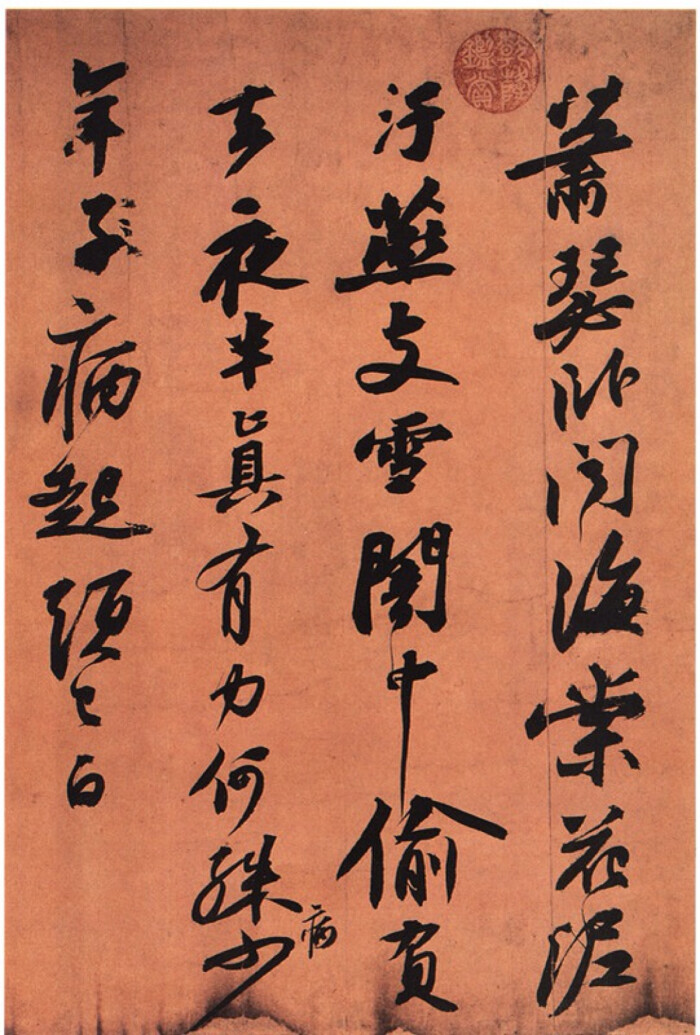 乾隆鑑賞
蕭瑟卧聞海棠花泥
汙燕支雪闇中偷負
去夜半真有力何殊少
病
年子病起頭已白